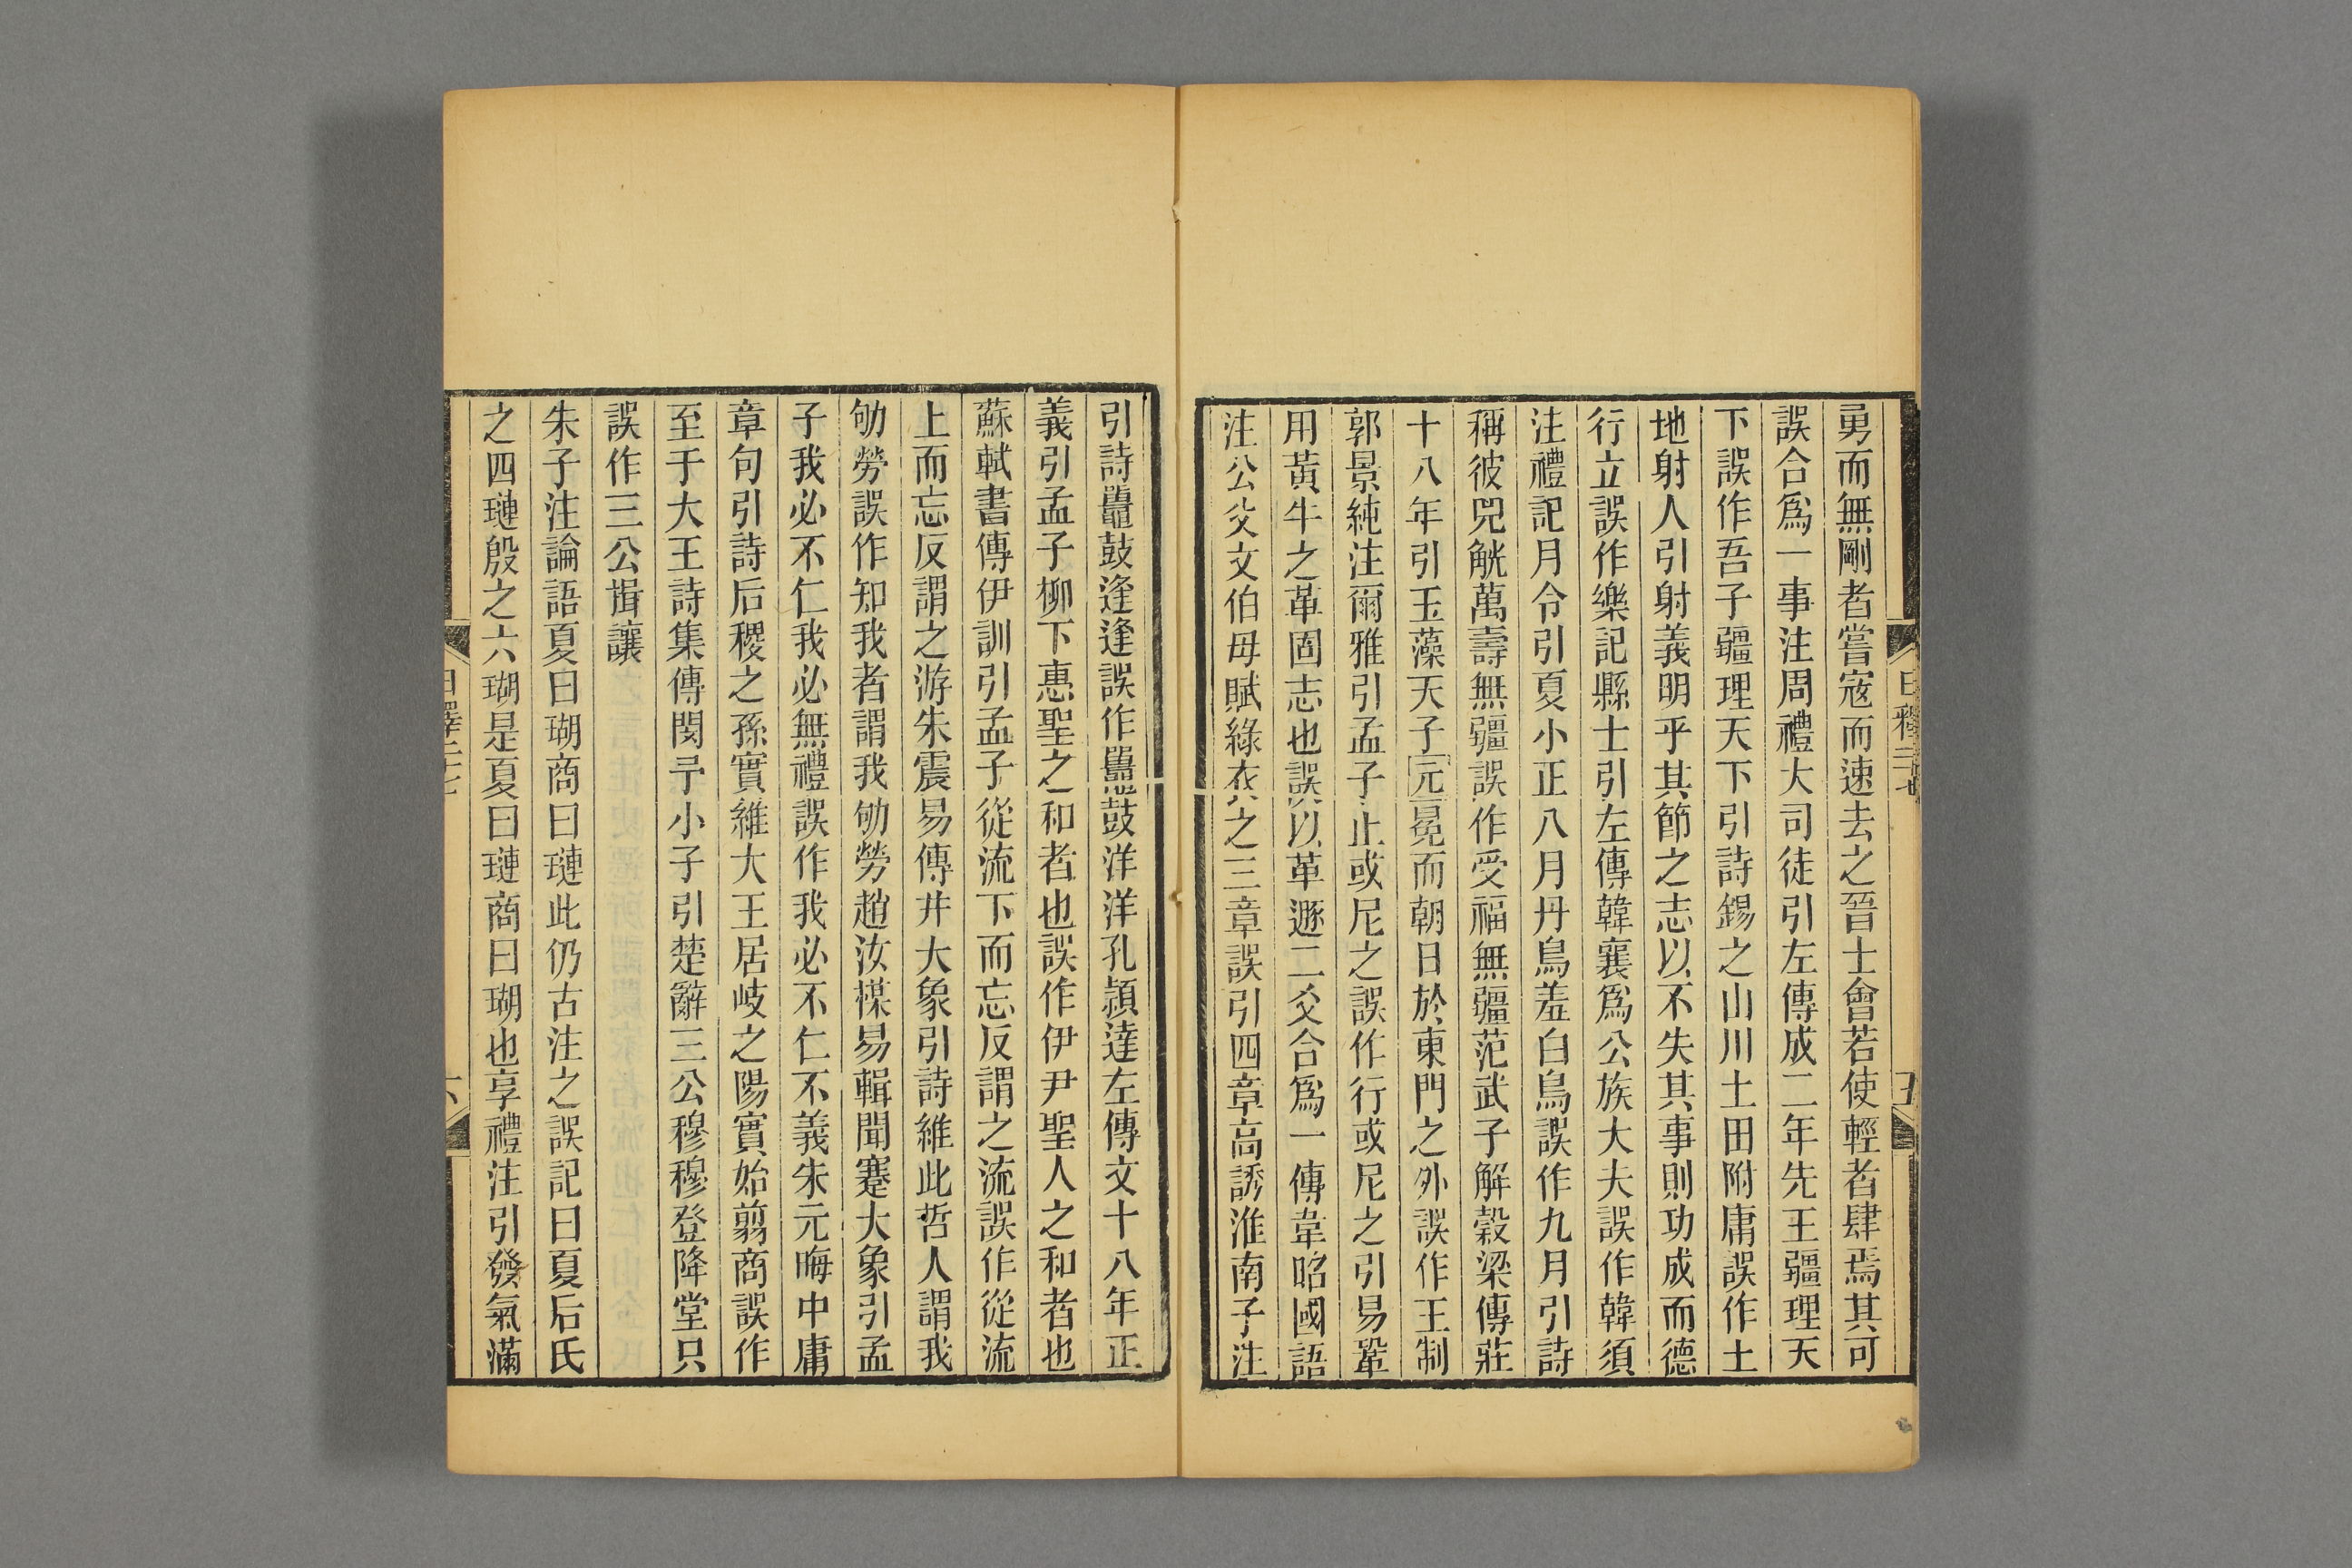 勇而無剛者嘗寇而速去之晉士會若使輕者肆焉其可
誤合爲一事注周禮大司徒引左傳成二年先王疆理天
下誤作吾子疆理天下引詩錫之山川土田附庸誤作土
地射人引射義明乎其節之志以不失其事則功成而德
行立誤作樂記縣士引左傳韓襄爲公族大夫誤作韓須
注禮記月令引夏小正八月丹鳥羞白鳥誤作九月引詩
稱彼兕觥萬壽無疆誤作受福無疆范武子解穀梁傳莊
十八年引玉藻天子元冕而朝日於東門之外誤作王制
郭景純注爾雅引孟子止或尼之誤作行或尼之引易鞏
用黃牛之革固志也誤以革遯二爻合爲一傳韋昭國語
注公父文伯母賦綠衣之三章誤引四章高誘淮南子注
引詩鼉鼓逢逢誤作鼉鼓洋洋孔潁達左傳文十八年正
義引孟子柳下惠聖之和者也誤作伊尹聖人之和者也
蘇軾書傳伊訓引孟子從流下而忘反謂之流誤作從流
上而忘反謂之游朱震易傳井大象引詩維此哲人謂我
劬勞誤作知我者謂我劬勞趙汝楳易輯聞蹇大象引孟
子我必不仁我必無禮誤作我必不仁不義朱元晦中庸
章句引詩后稷之孫實維大王居岐之陽實始翦商誤作
至于大王詩集傳閔予小子引楚辭三公穆穆登降堂只
誤作三公揖讓
朱子注論語夏曰瑚商曰璉此仍古注之誤記曰夏后氏
之四璉殷之六瑚是夏曰璉商曰瑚也享禮注引發氣滿